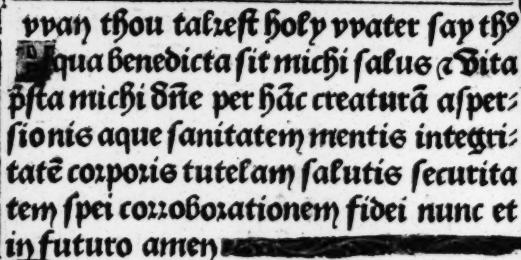 vvan thou takest holy vvater say thꝰ
Aqua benedicta sit michi salus ⁊ vita
p̄sta michi dn̄e per hāc creaturā asper⸗
sionis aque sanitatem mentis integri⸗
tatē corporis tutelam salutis securita
tem spei corroborationem fidei nunc et
in futuro amen